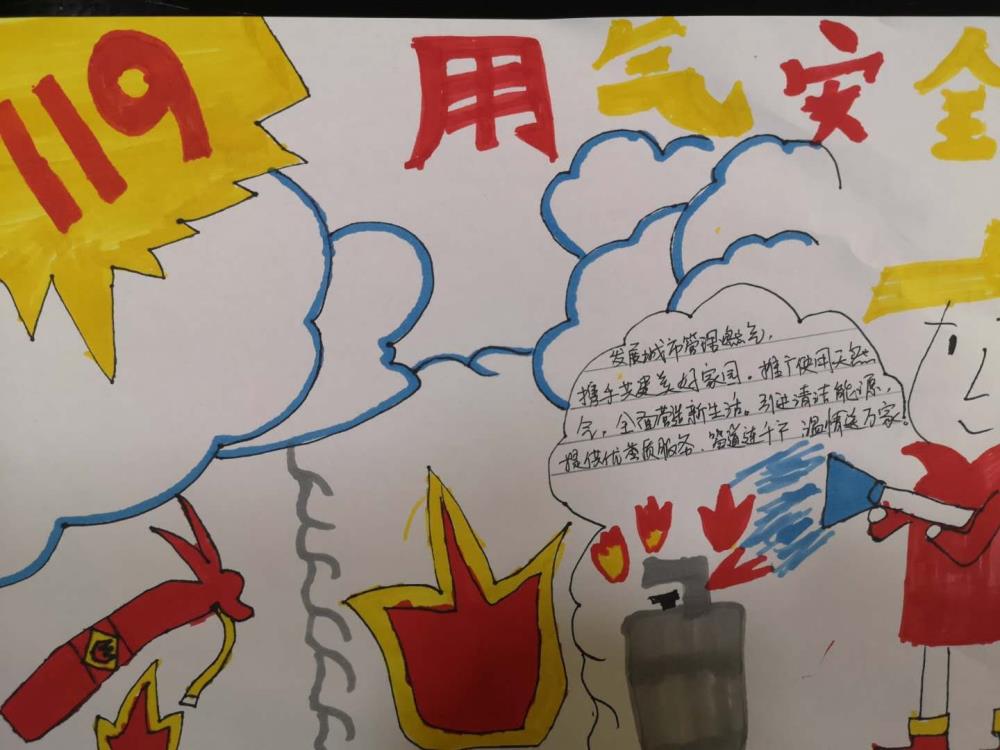 119
用气安全
发展城市管理燃气,
携手共建美好家园。推广使用天然
气,全面营造新生活。引进清洁能源,
提供优质服务,管道连千户 温情送万家!